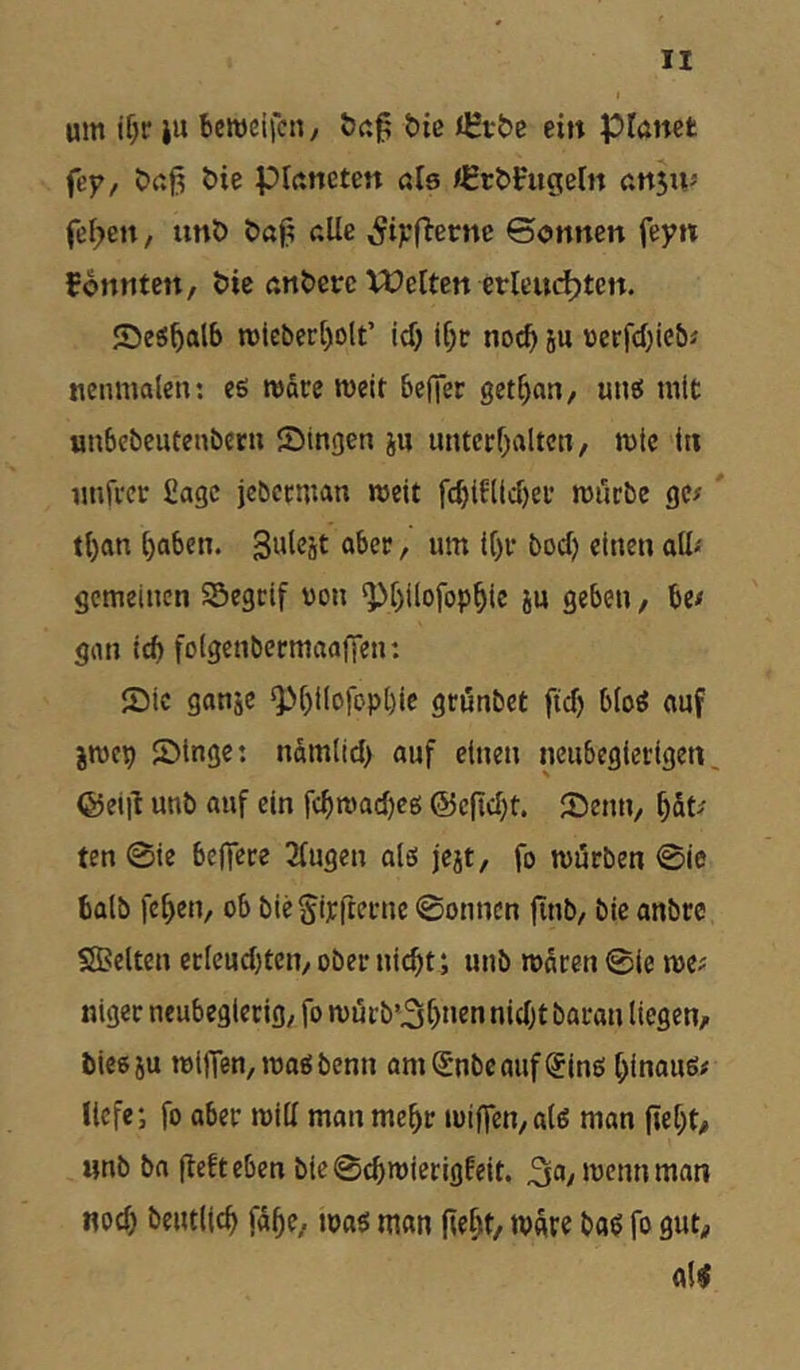 II
um ihr zu beweisen, daß die Erde ein Planet
sey, daß die Planeten als Erdkugeln anzu-
sehen, und daß alle Fixsterne Sonnen seyn
könnten, die andere Welten erleuchten.
Deshalb wiederholt' ich ihr noch zu verschied-
nenmalen: es wäre weit besser gethan, uns mit
unbedeutendern Dingen zu unterhalten, wie in
unsrer Lage jederman weit schiklicher würde ge-
than haben. Zulezt aber, um ihr doch einen all-
gemeinen Begrif von Philosophie zu geben, be-
gan ich folgendermaassen:
Die ganze Philosophie gründet sich blos auf
zwey Dinge: nämlich auf einen neubegierigen
Geist und auf ein schwaches Gesicht. Denn, hät-
ten Sie bessere Augen als jezt, so würden Sie
bald sehen, ob die Fixsterne Sonnen sind, die andre
Welten erleuchten, oder nicht; und wären Sie we-
niger neubegierig, so würd' Ihnen nicht daran liegen,
dies zu wissen, was denn am Ende auf Eins hinaus-
liefe; so aber will man mehr wissen, als man sieht,
und da stekt eben die Schwierigkeit. Ja, wenn man
noch deutlich sähe, was man sieht, wäre das so gut,
als